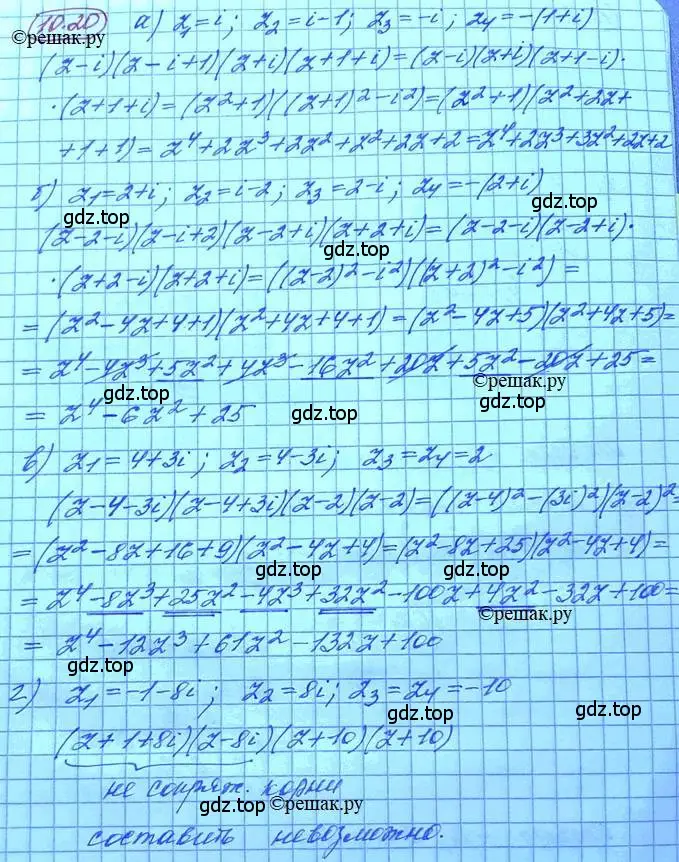 10.20 а) z₁=i; z₂=i-1; z₃=-i; z₄=-(1+i)
©решак.ру
(z-i)(z-i+1)(z+i)(z+1+i)=(z-i)(z+i)(z+1-i)·
·(z+1+i)=(z²+1)((z+1)²-i²)=(z²+1)(z²+2z+
+1+1)=z⁴+2z³+2z²+z²+2z+2=z⁴+2z³+3z²+2z+2
б) z₁=2+i; z₂=i-2; z₃=2-i; z₄=-(2+i)
gdz.top gdz.top
(z-2-i)(z-i+2)(z-2+i)(z+2+i)=(z-2-i)(z-2+i)·
gdz.top
·(z+2-i)(z+2+i)=((z-2)²-i²)((z+2)²-i²)=
=(z²-4z+4+1)(z²+4z+4+1)=(z²-4z+5)(z²+4z+5)=
=z⁴-4z³+5z²+4z³-16z²+20z+5z²-20z+25=
©решак.ру
=z⁴-6z²+25
gdz.top gdz.top
в) z₁=4+3i; z₂=4-3i; z₃=z₄=2
(z-4-3i)(z-4+3i)(z-2)(z-2)=((z-4)²-(3i)²)(z-2)²=
=(z²-8z+16+9)(z²-4z+4)=(z²-8z+25)(z²-4z+4)=
gdz.top
=z⁴-8z³+25z²-4z³+32z²-100z+4z²-32z+100=
©решак.ру
=z⁴-12z³+61z²-132z+100
gdz.top
г) z₁=-1-8i; z₂=8i; z₃=z₄=-10
gdz.top gdz.top
(z+1+8i)(z-8i)(z+10)(z+10)
не сопряж. корни
gdz.top ©решак.ру
составить невозможно.